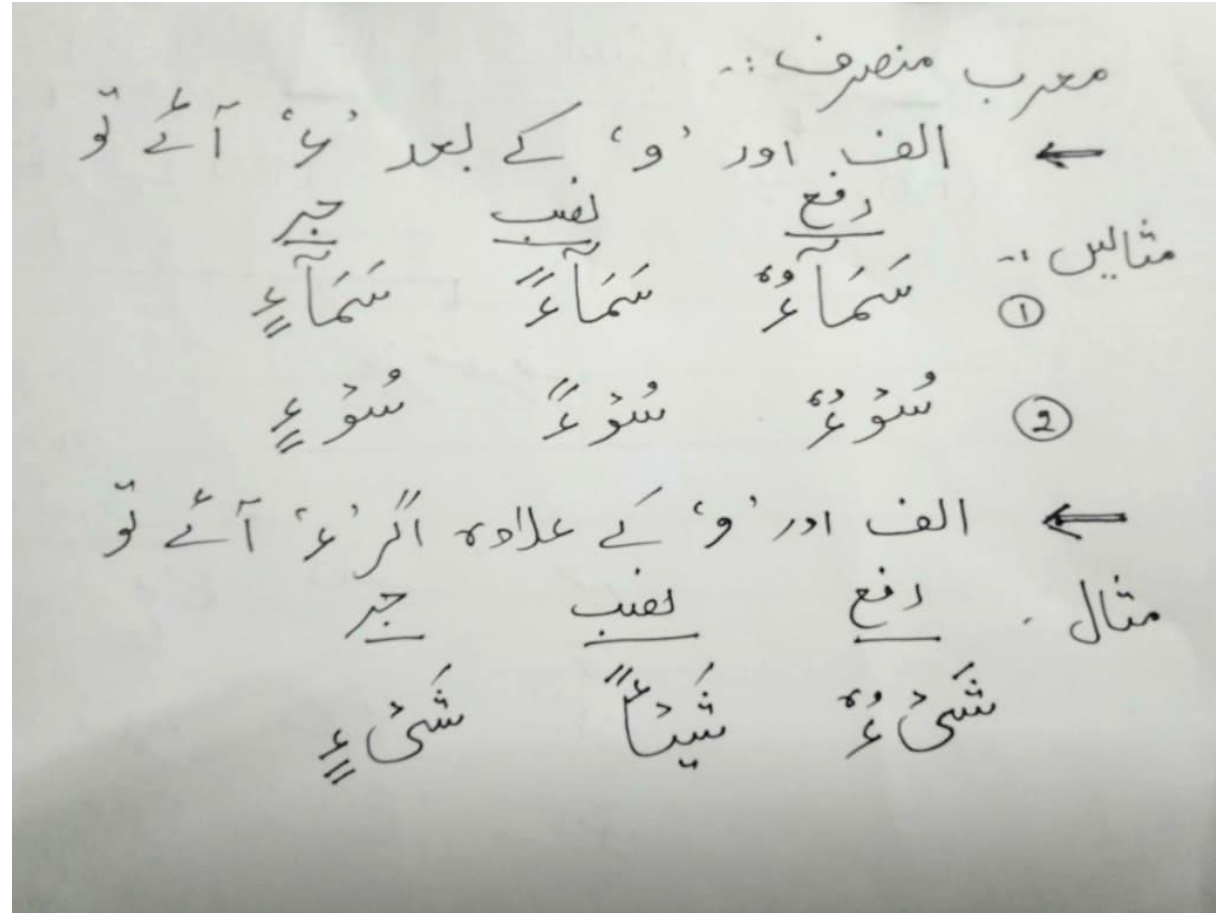 معرب منصرف :.
← الف اور ’و‘ کے بعد ’ء‘ آئے تو
رفع نصب جر
مثالیں :.
① سَمَآءٌ سَمَآءً سَمَآءٍ
② سُوْءٌ سُوْءً سُوْءٍ
← الف اور ’و‘ کے علاوہ اگر ’ء‘ آئے تو
مثال . رفع نصب جر
شَىْءٌ شَيْـًٔا شَىْءٍ